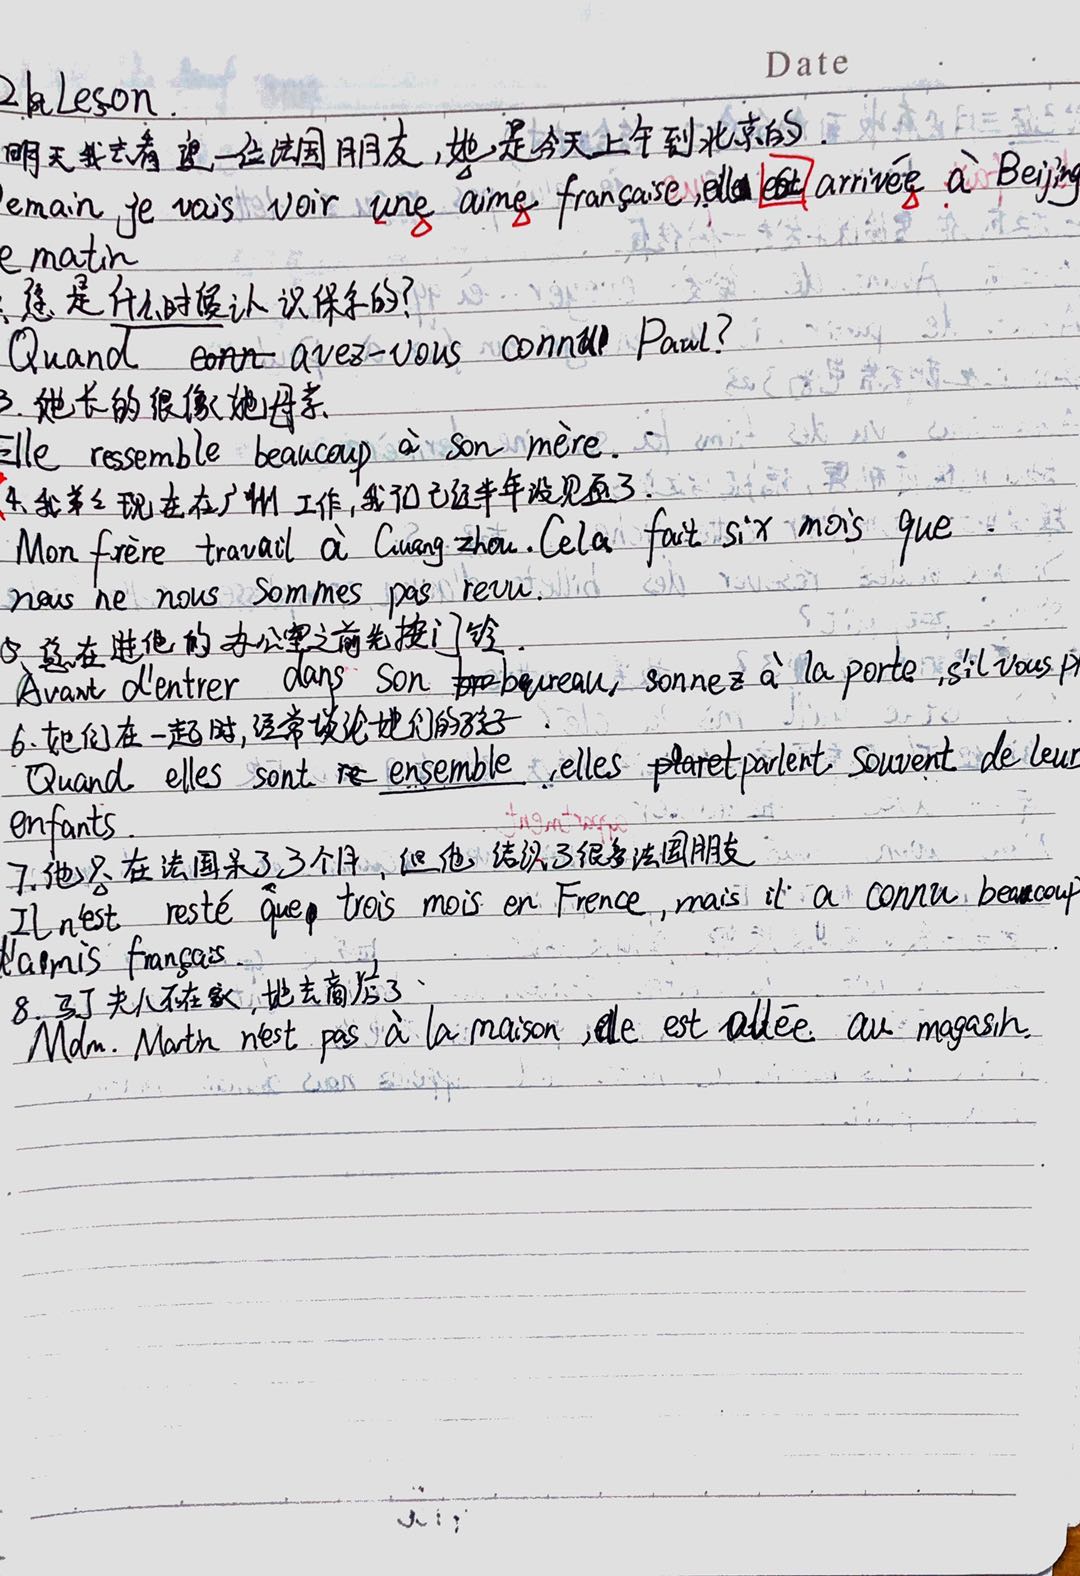 Date
21a Leson.
明天我去看望一位法国朋友,她是今天上午到北京的.
emain, je vais voir une aime française, elle est arrivée à Beijing
e matin
您是什么时候认识保尔的?
Quand conn avez-vous connu Paul?
3. 她长的很像她母亲.
Elle ressemble beaucoup à son mère.
4. 我弟弟现在在广州工作,我们已近半年没见面了.
Mon frère travail à Guang zhou. Cela fait six mois que
nous ne nous sommes pas revu.
5. 您在进他的办公室之前先按门铃.
Avant d'entrer dans son bureau, sonnez à la porte, s'il vous pl
6. 她们在一起时,经常谈论她们的孩子.
Quand elles sont re ensemble, elles plaret parlent souvent de leur
enfants.
7. 他只在法国呆了3个月,但他结识了很多法国朋友
Il n'est resté que trois mois en Frence, mais il a connu beaucoup
d'amis français.
8. 马丁夫人不在家,她去商店了.
Mdm. Martin n'est pas à la maison, elle est allée au magasin.